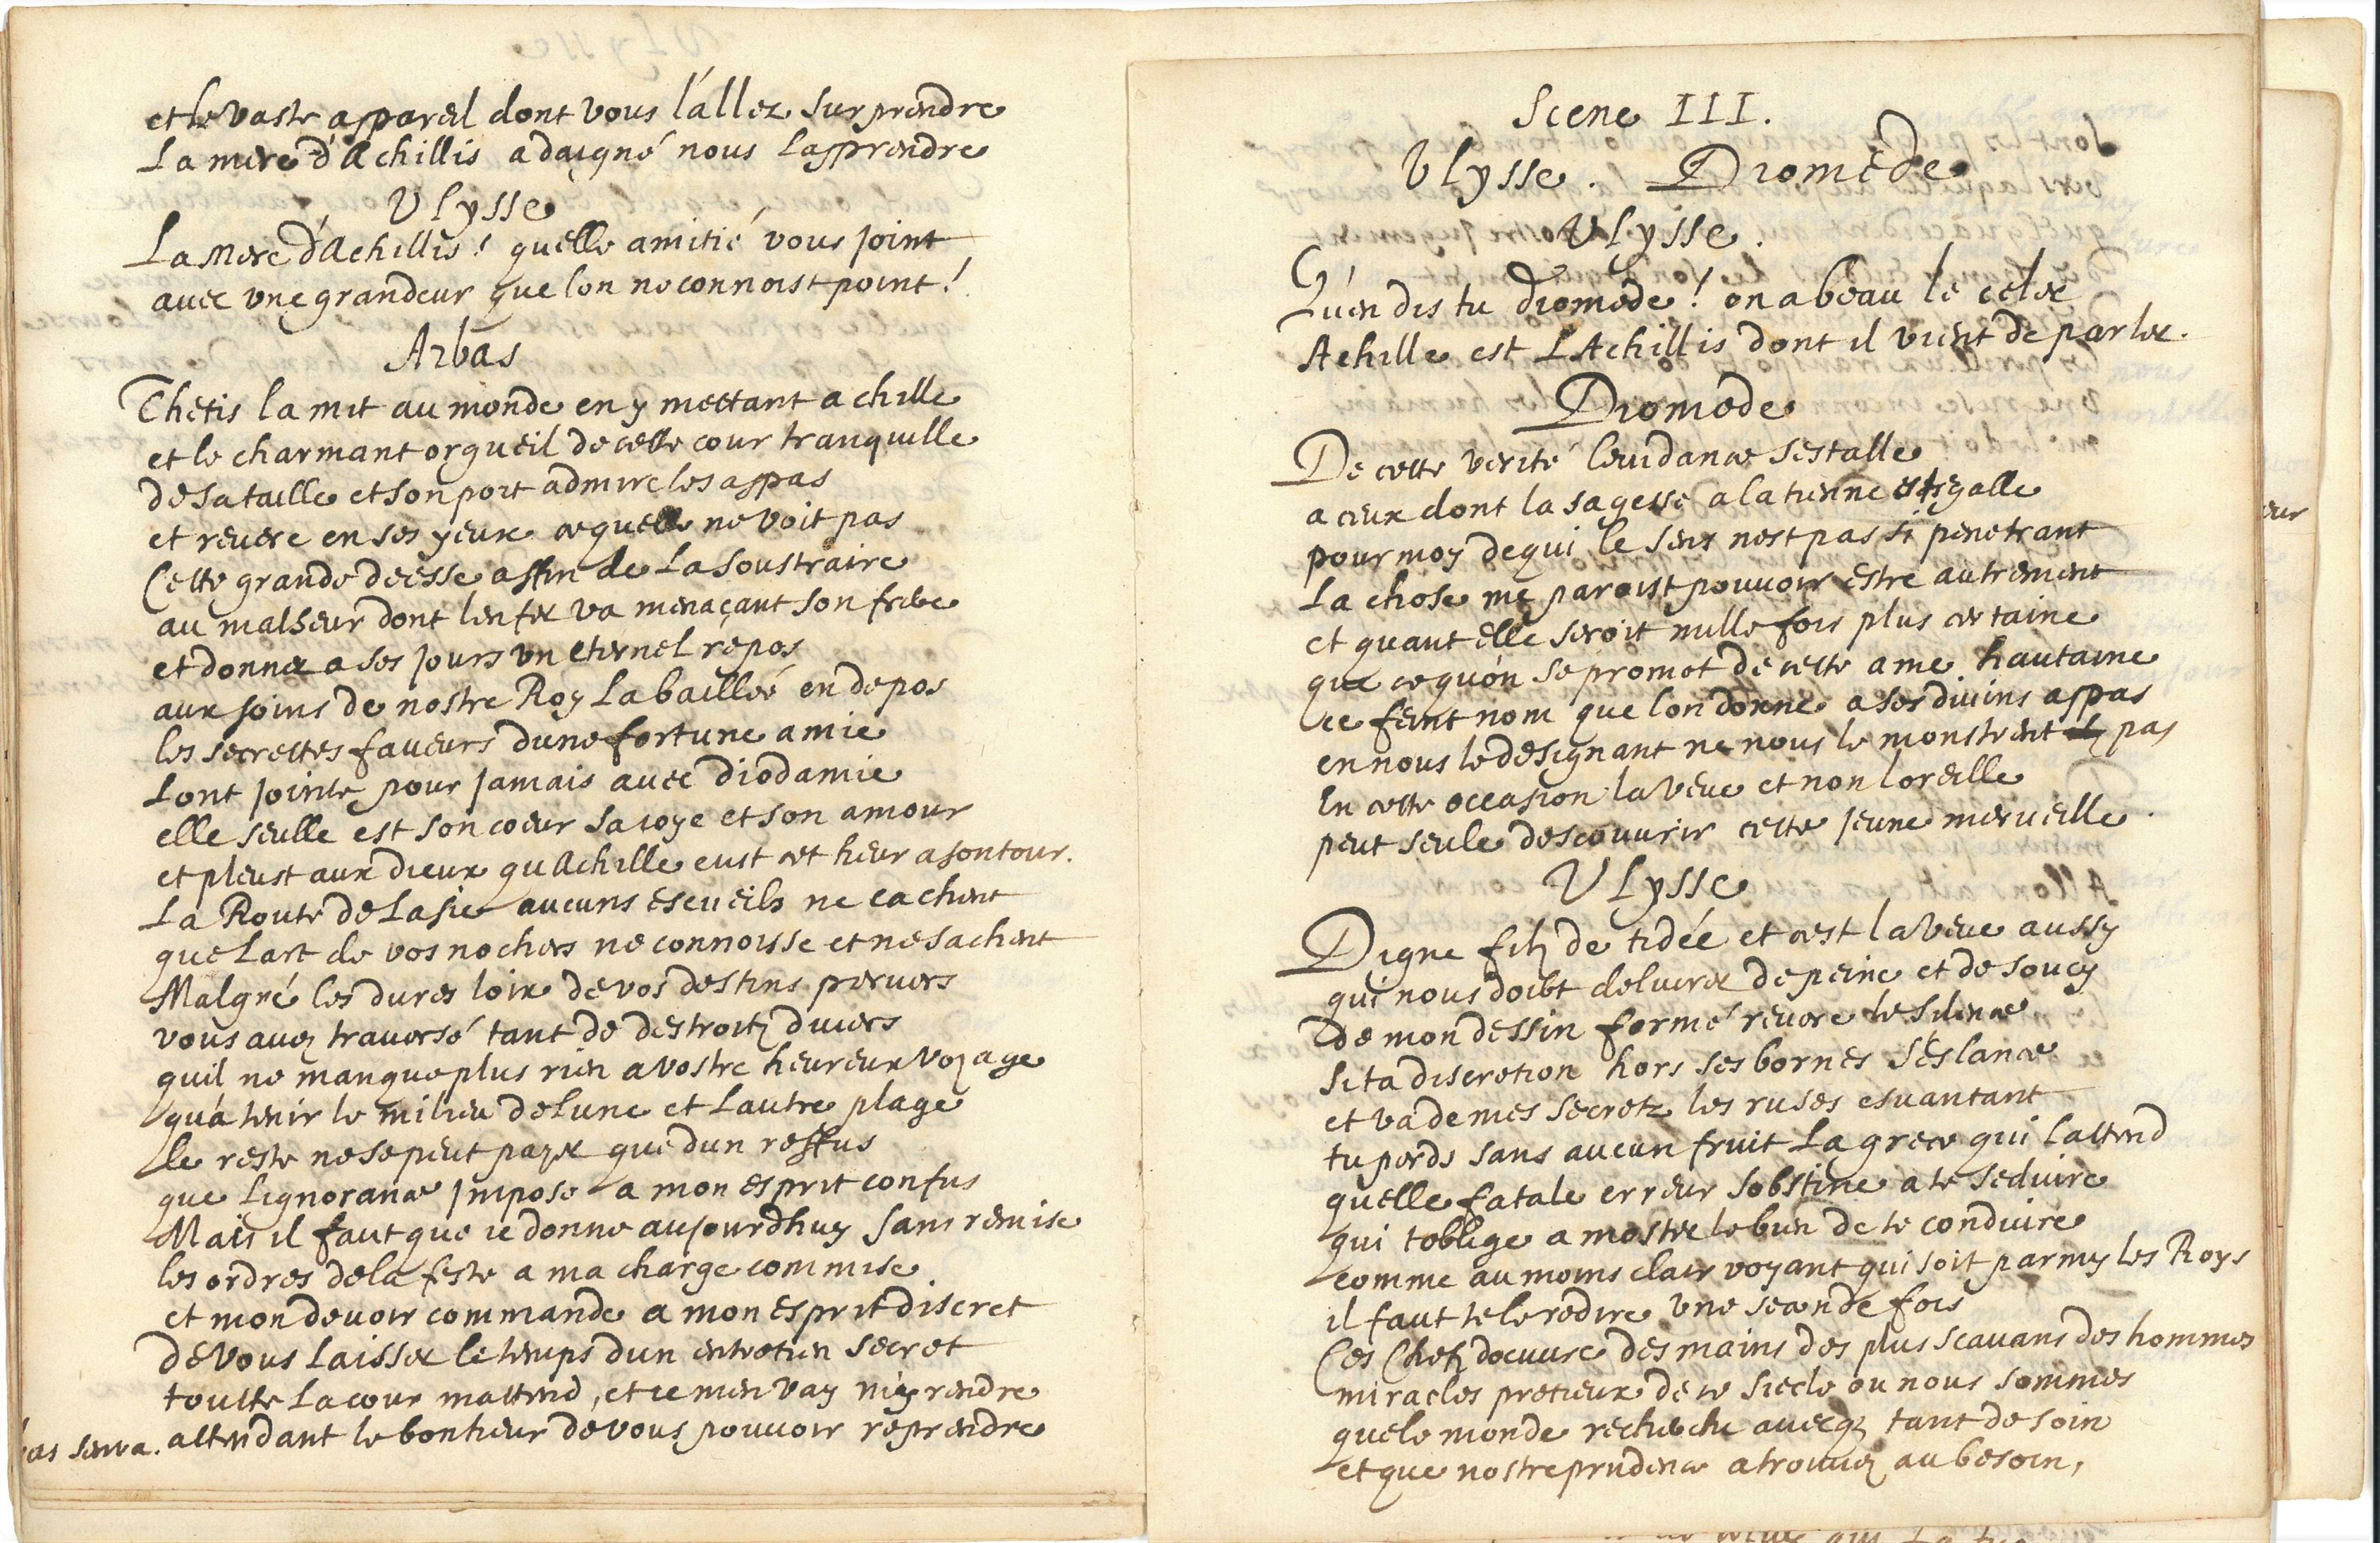 et le vaste appareil dont vous l'allez surprendre
La mere d'Achillis a daigné nous lapprendre
Ulysse
La Mere d'Achillis! quelle amitié vous joint
avec une grandeur que lon ne connoist point!
Arbas
Thetis la mit au monde en y mettant achille
et le charmant orgueil de cette cour tranquille
de sa taille et son port admire les appas
et revere en ses yeux ce quelle ne voit pas
Cette grande deesse affin de La soustraire
au malheur dont lenfer va menaçant son frere
et donner a ses jours un eternel repos
aux soins de nostre Roy La bailleé en depos
les secrettes faveurs dune fortune amie
Lont jointe pour jamais avec diodamie
elle seulle est son coeur sa ioye et son amour
et pleust aux dieux qu Achille eust cet heur a son tour.
La Route de Lasie aucuns escueils ne cachent
que Lart de vos nochers ne connoisse et ne sachent
Malgré les dures loix de vos destins pervers
vous avez traversé tant de destroitz divers
quil ne manque plus rien a vostre heureux voyage
qu'a tenir le milieu de lune et Lautre plage
le reste ne se peut payer que dun reffus
que Lignorance impose a mon esprit confus
Mais il faut que ie donne aujourdhuy sans remise
les ordres de la feste a ma charge commise
et mon devoir commande a mon esprit discret
de vous Laisser le temps dun entretien secret
toutte La cour mattend, et ie men vay m'y rendre
attendant le bonheur de vous pouvoir reprendre
bas senva.
Scene III.
Ulysse. Diomède
Ulysse.
Qu'en dis tu diomede! on a beau le celer
Achille est LAchillis dont il vient de parler.
Diomede
De cette verité levidance sestalle
a ceux dont la sagesse a la tienne est egalle
pour moy de qui le sens nest pas si penetrant
La chose me paroist pouvoir estre autrement
et quant elle seroit mille fois plus certaine
que ce qu'on se promet de cette ame hautaine
ce feint nom que lon donne a ses divins appas
en nous le designant ne nous le monstrent pas
en cette occasion la veue et non loreille
peut seule descouvrir cette jeune merveille.
Ulysse
Digne filz de tidée et cest la veue aussy
qui nous doibt delivrer de peine et de soucy
de mon dessin formé revere le silence
si ta discretion hors ses bornes s'eslance
et va de mes secretz les ruses esvantant
tu perds sans aucun fruit La grece qui lattend
quelle fatale erreur sobstine a te seduire
qui toblige a moster le bien de te conduire
comme au moins clair voyant qui soit parmy les Roys
il faut te le redire une seconde fois
Ces Chefz doeuvre des mains des plus scavans des hommes
miracles pretieux de ce siecle ou nous sommes
que le monde recherche avecq tant de soin
et que nostre prudence a trouvez au besoin,
eur